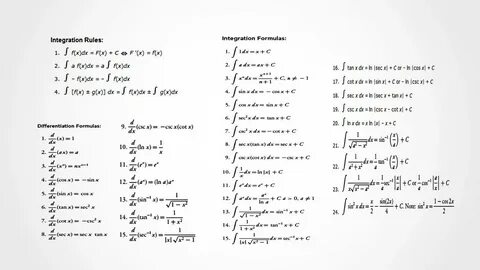 Integration Rules:
1. ∫ f(x)dx = F(x) + C ⇔ F'(x) = f(x)
2. ∫ a f(x)dx = a ∫ f(x)dx
3. ∫ − f(x)dx = − ∫ f(x)dx
4. ∫ [f(x) ± g(x)] dx = ∫ f(x)dx ± ∫ g(x)dx
Differentiation Formulas:
1. d/dx (x) = 1
2. d/dx (ax) = a
3. d/dx (xⁿ) = nxⁿ⁻¹
4. d/dx (cos x) = − sin x
5. d/dx (sin x) = cos x
6. d/dx (tan x) = sec² x
7. d/dx (cot x) = − csc² x
8. d/dx (sec x) = sec x tan x
9. d/dx (csc x) = − csc x(cot x)
10. d/dx (ln x) = 1/x
11. d/dx (eˣ) = eˣ
12. d/dx (aˣ) = (ln a)aˣ
13. d/dx (sin⁻¹ x) = 1/√(1−x²)
14. d/dx (tan⁻¹ x) = 1/(1+x²)
15. d/dx (sec⁻¹ x) = 1/(|x|√(x²−1))
Integration Formulas:
1. ∫ 1dx = x + C
2. ∫ a dx = ax + C
3. ∫ xⁿ dx = xⁿ⁺¹/(n+1) + C, n ≠ −1
4. ∫ sin x dx = − cos x + C
5. ∫ cos x dx = sin x + C
6. ∫ sec² x dx = tan x + C
7. ∫ csc² x dx = − cot x + C
8. ∫ sec x(tan x) dx = sec x + C
9. ∫ csc x(cot x) dx = − csc x + C
10. ∫ 1/x dx = ln |x| + C
11. ∫ eˣ dx = eˣ + C
12. ∫ aˣ dx = aˣ/ln a + C a > 0, a ≠ 1
13. ∫ 1/√(1−x²) dx = sin⁻¹ x + C
14. ∫ 1/(1+x²) dx = tan⁻¹ x + C
15. ∫ 1/(|x|√(x²−1)) dx = sec⁻¹ x + C
16. ∫ tan x dx = ln |sec x| + C or − ln |cos x| + C
17. ∫ cot x dx = ln |sin x| + C or − ln |csc x| + C
18. ∫ sec x dx = ln |sec x + tan x| + C
19. ∫ csc x dx = ln |csc x − cot x| + C
20. ∫ ln x dx = x ln |x| − x + C
21. ∫ 1/√(a²−x²) dx = sin⁻¹ (x/a) + C
22. ∫ 1/(a²+x²) dx = 1/a tan⁻¹ (x/a) + C
24. ∫ sin² x dx = x/2 − sin(2x)/4 + C. Note: sin² x = (1−cos 2x)/2